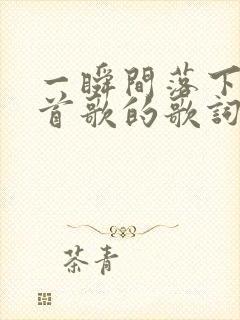 一瞬間落下
首歌的歌詞
茶青